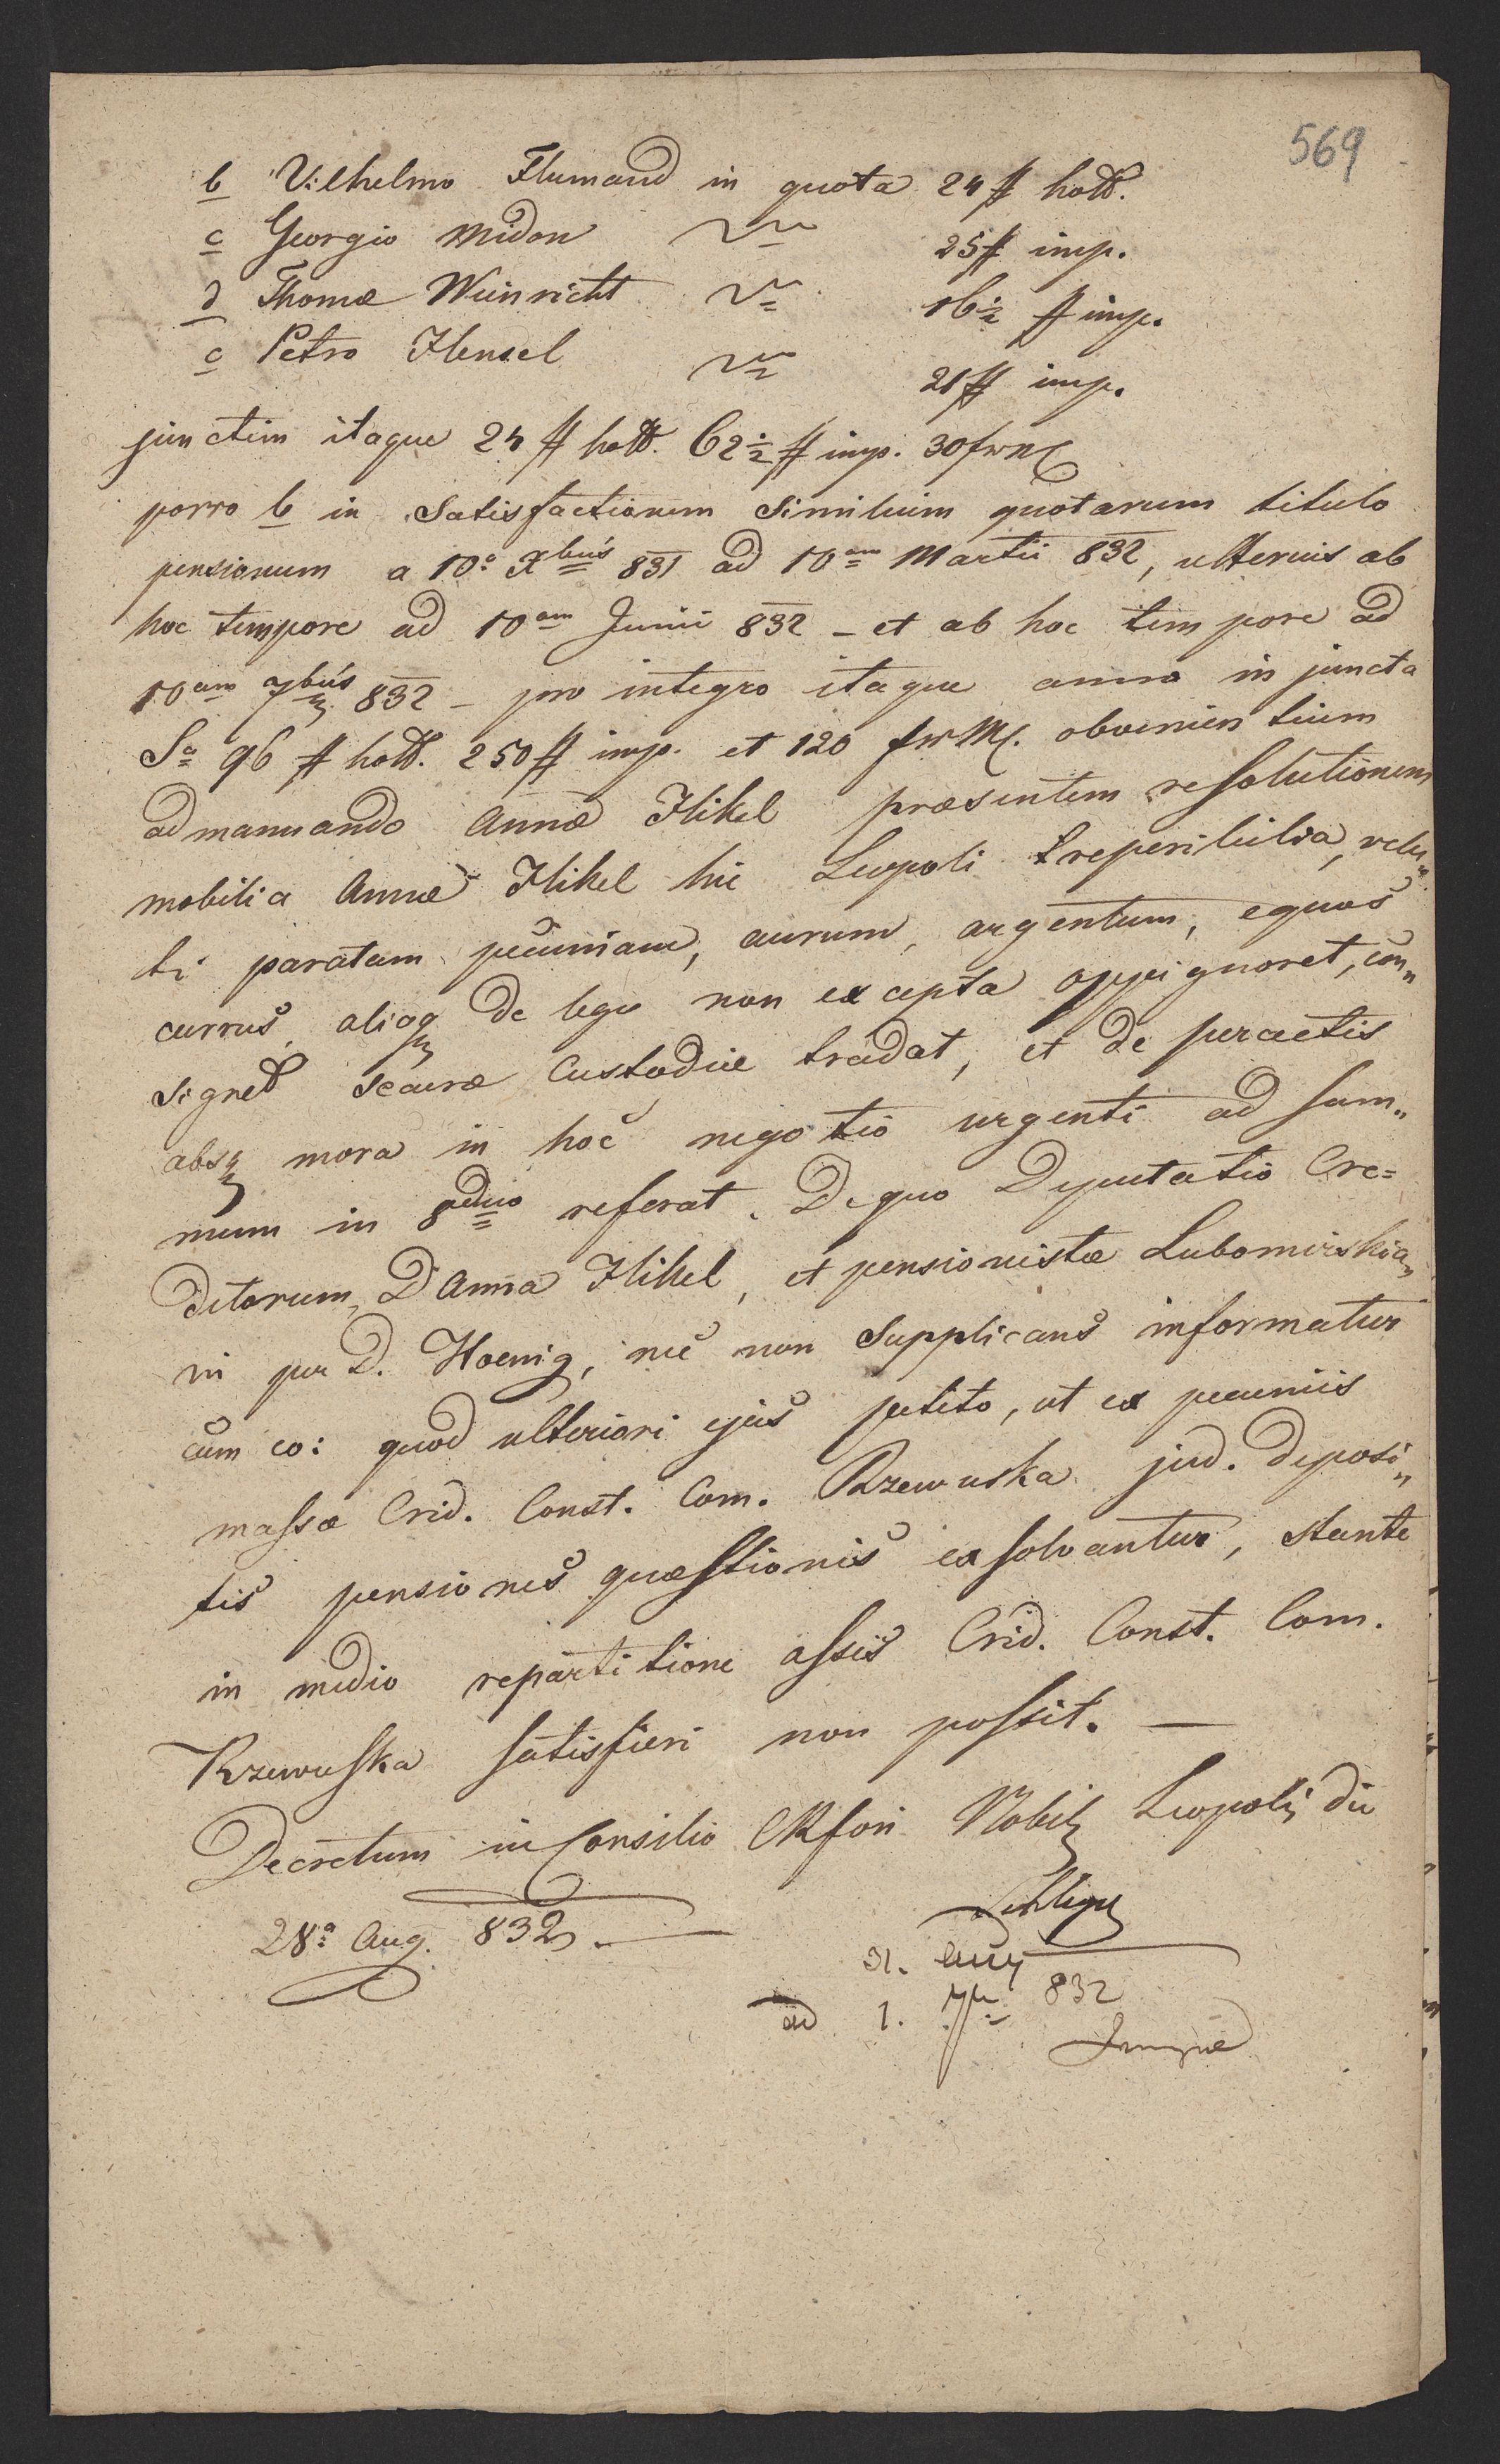 569
b Vilhelmo Flumand in quota 24 # holl.
c Georgio Midon 25# imp.
d Thomæ Weinricht 16½ # imp.
e Petro Hensel 21# imp.
junctim itaque 24 # holl. 62½ # imp. 30 frn
porro b in satisfactionem similium quotarum titulo
pensionum a 10a Xbris 831 ad 10am Martii 832, ulterius ab
hoc tempore ad 10am Junii 832 – et ab hoc tempore ad
10am 7bris 832 – pro integro itaque anno in juncta
Sa 96 # holl. 250 # imp. et 120 frM. obvenientium
admanuando Annæ Hikel præsentem resolutionem
mobilia Annæ Hikel hic Leopoli reperibilia, velu„
ti paratam pecuniam, aurum, argentum, equos
currus, aliaq de lege non excepta oppignoret, con„
signet securæ custodiæ tradat, et de peractis
absq mora in hoc negotio urgenti ad sum„
mum in 8duo referat. De quo Deputatio Cre=
ditorum, D Anna Hikel, et pensionistæ Lubomirskia„
ni per D. Hoenig, nec non supplicans informatur
cum eo: quod ulteriori ejus petito, ut ex pecuniis
massæ Crid. Const. Com. Rzewuska jud. deposi„
tis pensiones quæstionis exsolvantur, stante
in medio repartitione assis Crid. Const. Com.
Rzewuska satisfieri non possit. —
Decretum in Consilio CRfori Nobil Leopoli die
28a Aug. 832. —
31. Aug
ad 1. 7br 832